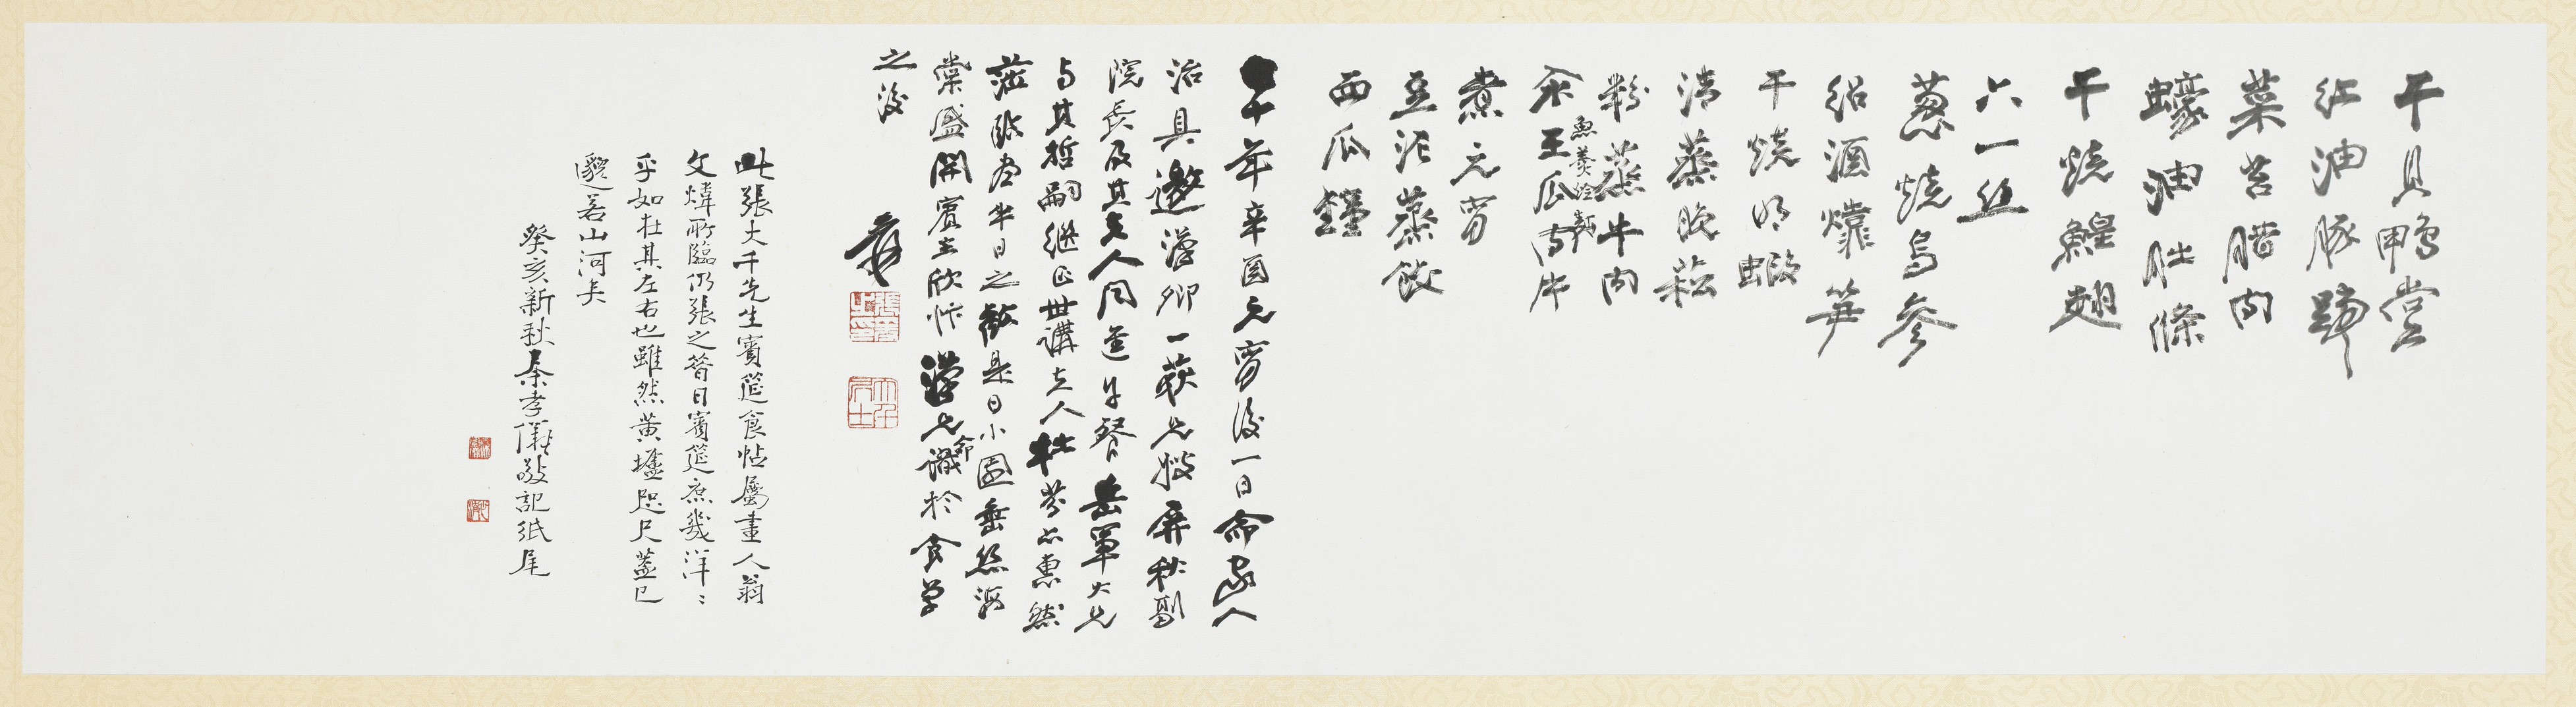 干貝鴨掌
紅油豚蹄
菜苔腊肉
蠔油肚條
干燒鰉翅
六一丝
葱燒烏參
紹酒㸆笋
干燒明蝦
清蒸晚菘
粉蒸牛肉
魚羹燴麵
氽王瓜肉片
煮元宵
豆泥蒸餃
西瓜鍾
十年辛酉元宵後一日命家人
治具邀漢卿一荻兄嫂屏秋副
院長及其夫人同進午餐岳軍大兄
与其哲嗣繼正世講夫人杜芬亦惠然
蒞臨盡半日之歡是日小園垂絲海
棠盛開賓主欣忭漢兄命識於食單
之後
爰
張爰之印
大千居士
此張大千先生賓筵食帖屬畫人翁
文煒所臨仍張之簪日賓筵庶幾洋〻
乎如在其左右也雖然黄壚咫尺蓋已
邈若山河矣
癸亥新秋秦孝儀敬記紙尾